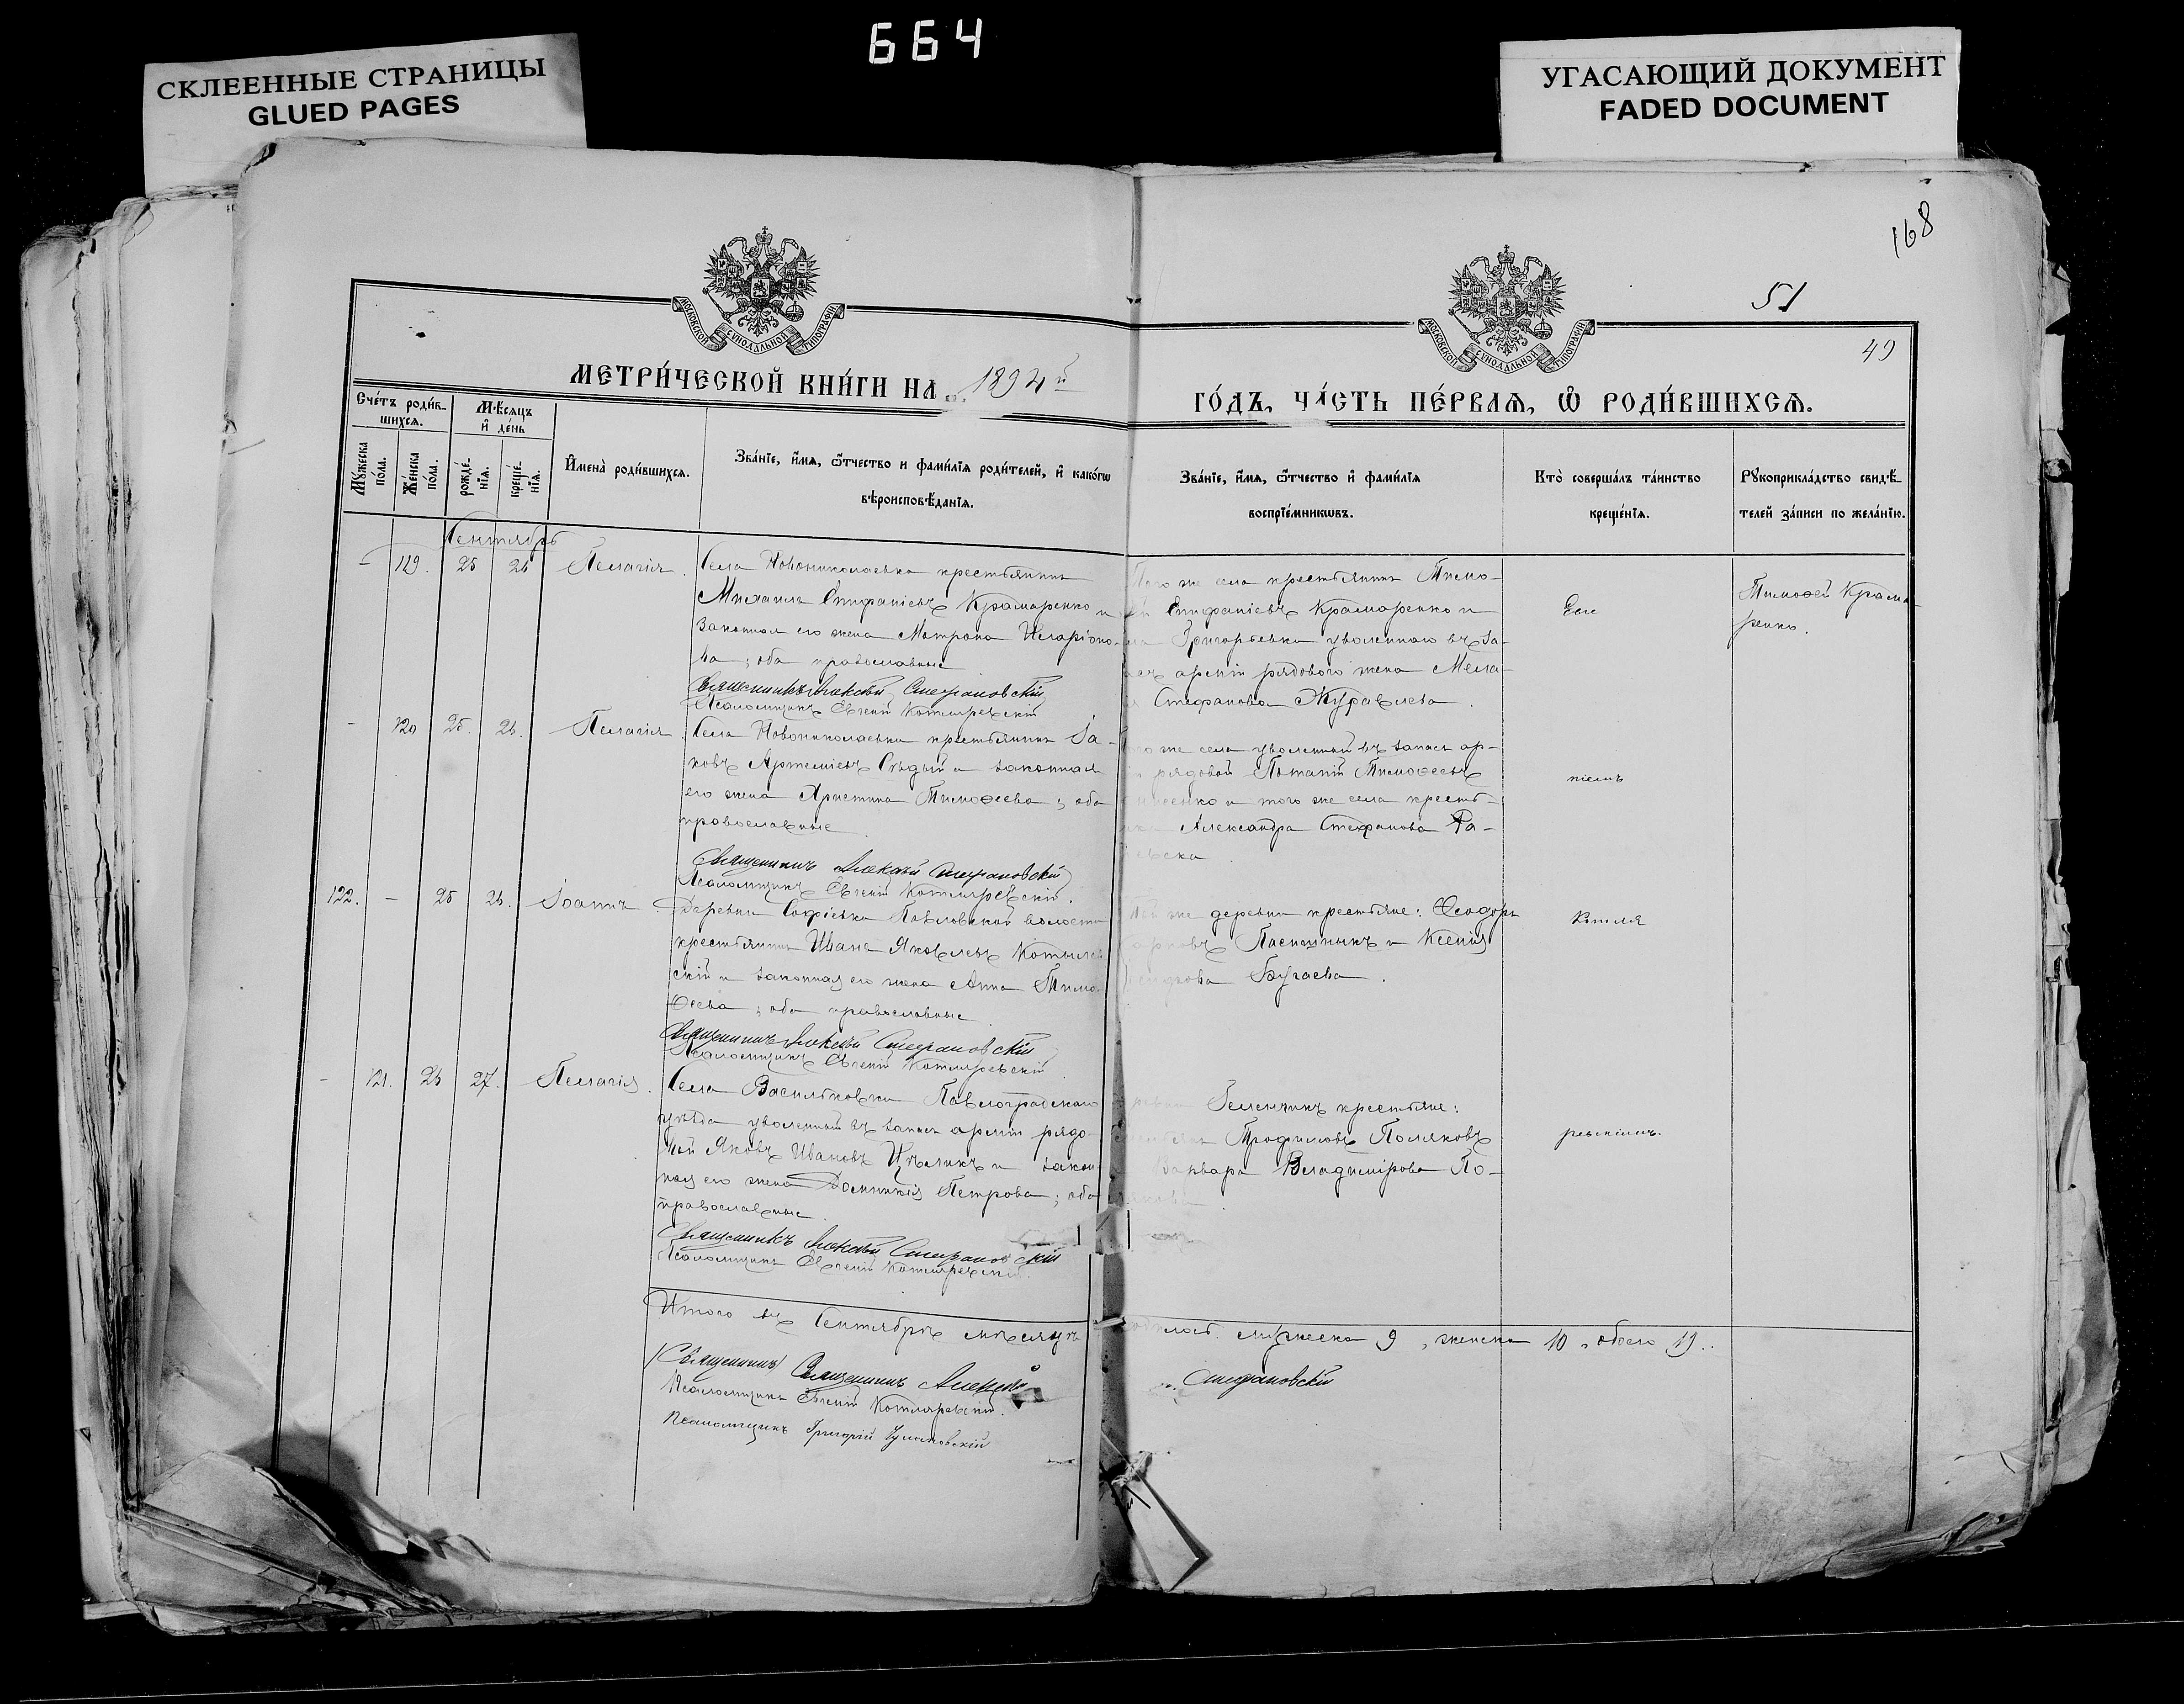 664
СКЛЕЕННЫЕ СТРАНИЦЫ
GLUED PAGES
УГАСАЮЩИЙ ДОКУМЕНТ
FADED DOCUMENT
168
51
49
МОСКОВСКОЙ СѴНОДАЛЬНОЙ ТИПОГРАФІИ
МОСКОВСКОЙ СѴНОДАЛЬНОЙ ТИПОГРАФІИ
МЕТРИ́ЧЕСКОЙ КНИ́ГИ НА 1894й
ГО́ДЪ, ЧА́СТЬ ПЕ́РВАѦ, Ѡ҆ РОДИ́ВШИХСѦ.
Сче́тъ роди́в-
шихсѧ.
Мꙋ́жеска по́ла.
Же́нска по́ла.
Мѣ́сѧцъ и҆ де́нь
рожде́-
нїѧ.
креще́-
нїѧ.
И҆мена̀ роди́вшихсѧ.
Зва́нїе, и҆́мѧ, ѻ҆́тчество и фами́лїѧ роди́телей, и҆ како́гѡ
вѣроисповѣ́данїѧ.
Зва́нїе, и҆́мѧ, ѻ҆́тчество и҆ фами́лїѧ
воспрїе́мникѡвъ.
Кто̀ соверша́лъ та́инство
креще́нїѧ.
Рꙋкоприкла́дство свидѣ́-
телей за́писи по жела́нїю.
Сентябрь
- 119. 25 26 Пелагія.
Села Новониколаевка крестьянинъ
Михаилъ Епифаніевъ Крамаренко и
законная его жена Матрона Иларіоно-
ва; оба православные
Священникъ Алексѣй Стефановскій
Псаломщикъ Евгеній Котляревскій
Того же села крестьянинъ Тимо-
Епифаніевъ Крамаренко и
Григорьевка уволеннаго въ за-
арміи рядового жена Мела-
Стефанова Журавлева.
Евге
Тимоѳей Крама-
ренко.
- 120 25. 26. Пелагія.
Села Новониколаевка крестьянинъ Іа-
ковъ Артеміевъ Сѣдый и законная
его жена Христина Тимоѳеева; оба
православные.
Священникъ Алексѣй Стефановскій
Псаломщикъ Евгеній Котляревскій.
же села уволенный въ запасъ ар-
рядовой Потапій Тимоѳеевъ
и того же села кресть-
Александра Стефанова Ра-
ніемъ
122. - 25 26. Іоаннъ.
Деревни Софіевка Павловской волости
крестьянинъ Иванъ Яковлевъ
скій и законная его жена Анна Тимо-
ѳеева; оба православные
Священникъ Алексѣй Стефановскій
Псаломщикъ Евгеній Котляревскій
же деревни крестьяне: Ѳеодоръ
Пасишныкъ и Ксенія
Бугаева.
Котля
- 121. 26 27. Пелагія.
Села Васильковки Павлоградскаго
уѣзда уволенный въ запасъ арміи рядо-
вой Яковъ Ивановъ Цѣликъ и закон-
ная его жена Домникія Петрова; оба
православные.
Священникъ Алексѣй Стефановскій
Псаломщикъ Евгеній Котляревскій.
крестьяне:
Трофимовъ Поляковъ
Варвара Владимірова По-
ревскимъ.
Итого въ Сентябрѣ мѣсяцѣ
мужеска 9, женска 10, обоего 19.
Священникъ Алексѣй
Стефановскій
Псаломщикъ Евгеній Котляревскій.
Псаломщикъ Григорій